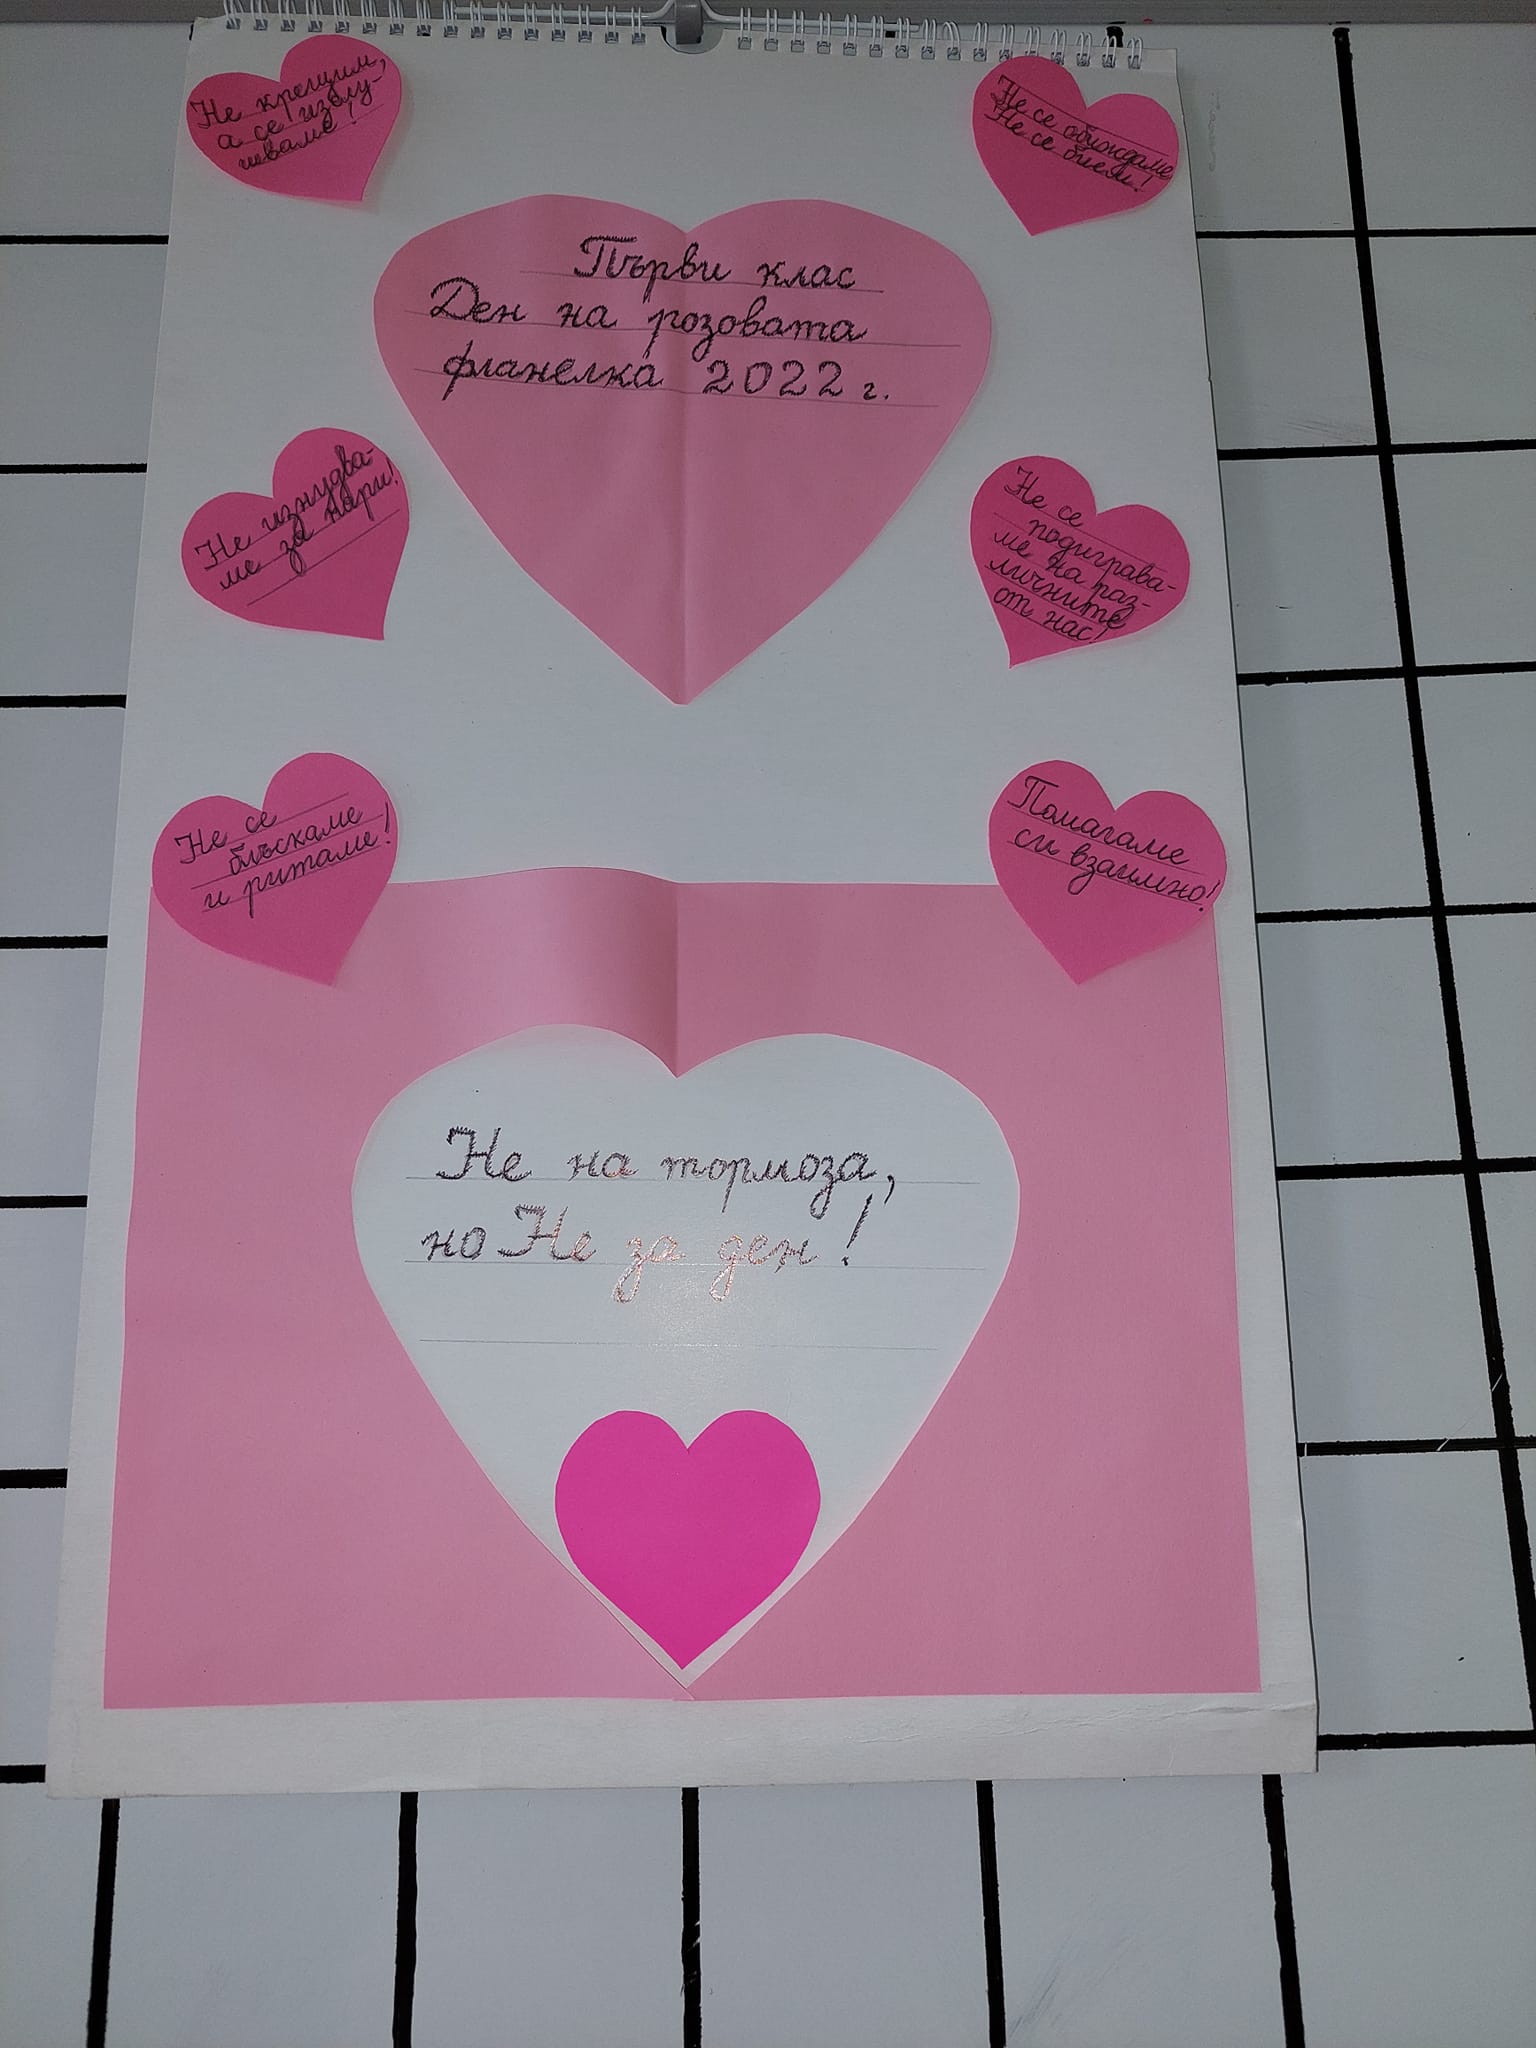 Не крещим,
а се изслу-
шваме!
Не се обиждаме
Не се бием!
Първи клас
Ден на розовата
фланелка 2022 г.
Не изнудва-
ме за пари!
Не се
подиграва-
ме на раз-
личните
от нас!
Не се
блъскаме
и ритаме!
Помагаме
си взаимно!
Не на тормоза,
но Не за ден!